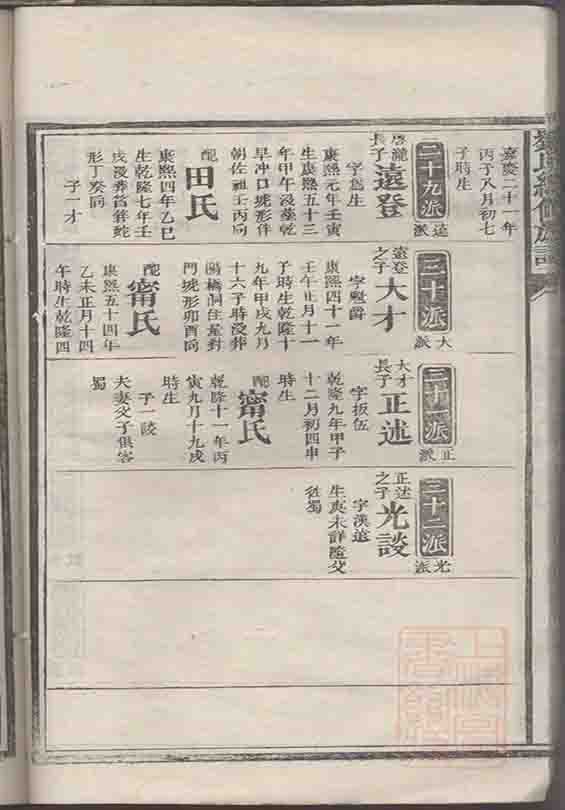 嘉慶二十一年
丙子八月初七
子時生
二十九派
遠派
長子遠登
康熙元年壬寅
生康熙五十三
年甲午沒葬乾
早冲口虎形伴
朝佐祖壬丙向
配田氏
康熙四年乙巳
生乾隆七年壬
戌沒葬
形丁癸向
子一才
三十派
大派
遠登之子大才
字魁爵
康熙四十一年
壬午正月十一
子時生乾隆十
九年甲戌九月
十六子時沒葬
陽橋洞住屋對
門虎形卯酉向
配甯氏
康熙五十四年
乙未正月十四
午時生乾隆四
三十一派
正派
大才長子正述
字板伍
乾隆九年甲子
十二月初四申
時生
配甯氏
乾隆十一年丙
寅九月十九戌
時生
子一談
夫妻父子俱客
蜀
三十二派
光派
正述之子光談
字漢遠
生庚未詳隨父
往蜀